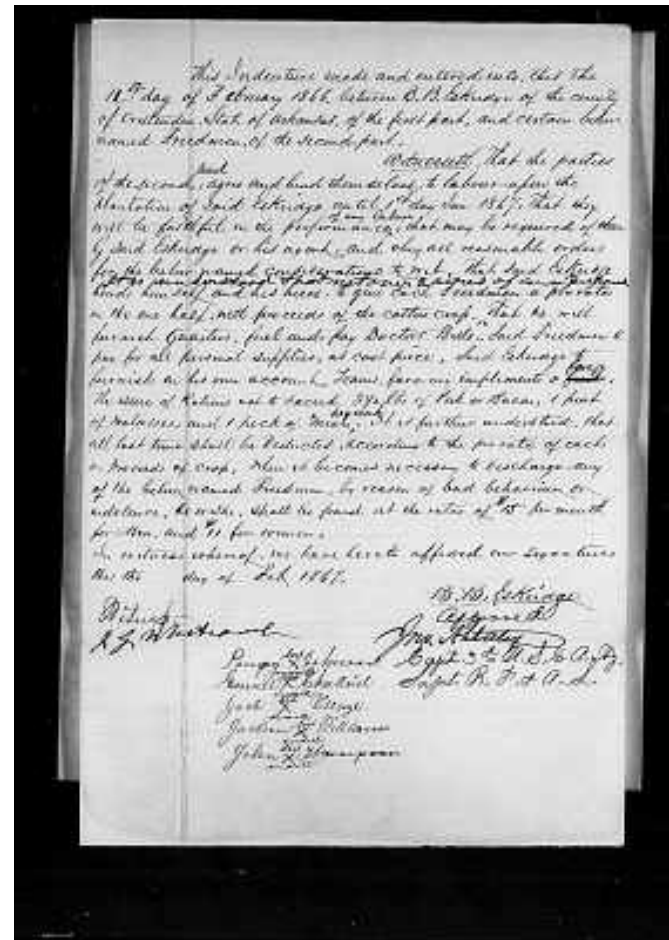 This Indenture made and entered into, this the
11th day of February 1866, between B. B. Eskridge of the county
of Crittenden State of Arkansas, of the first part, and certain below
named Freedmen, of the second part.
Witnesseth, That the parties
part
of the second, agree and bind themselves, to labour upon the
Plantation of Said Eskridge until 1st day Jan 1867; That they
will be faithful in the performance, that may be required of them
by Said Eskridge or his agent, and obey all reasonable orders
for the below named considerations to wit, that Said Eskridge
binds himself and his heirs to give each Freedman a prorata
in the one half, nett proceeds of the cotton crop, that he will
furnish Quarters, fuel and pay Doctors Bills, Said Freedmen to
pay for all personal supplies, at cost price, Said Eskridge to
furnish on his own account, Teams, farming impliments &
the issue of Rations not to exceed lbs of Pork or Bacon, 1 pint
of molasses, and 1 peck of meal, It is further understood, that
all lost time shall be deducted according to the prorata of each
in proceeds of crop, When it becomes necessary to discharge any
of the below named Freedmen, by reason of bad behaviour or
indolence, he or she, shall be paid at the rates of $15 per month
for Men, and $11 for women.
In witness whereof, we have hereto affixed our signatures
this the day of Feb 1867.
B. B. Eskridge
Witness
Approved
Capt 3rd U.S.C. Arty
Supt R. F. & A. L.
Jack X George
Jackson X Williams
John X Thompson